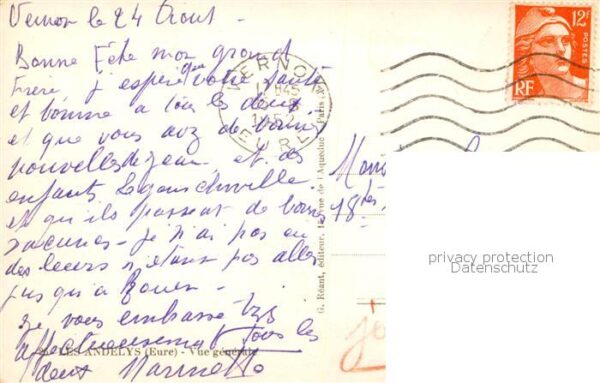 Vernon le 24 Aout.
Bonne Fête mon grand
Frère, j'espère que votre santé
est bonne a tous les deux
et que vous avez de bonnes
nouvelles de Jean et des
enfants.
et qu'ils passent de bonnes
vacances - je n'ai pas eu
des leurs n'étant pas allée
jusqu'a Rouen -
Je vous embrasse très
affectueusement tous les
deux Marinette
LES ANDELYS (Eure) - Vue générale
G. Réant, éditeur, rue de l'Aqueduc, Paris
VERNON
1952
EURE
12F
POSTES
RF
18
privacy protection
Datenschutz